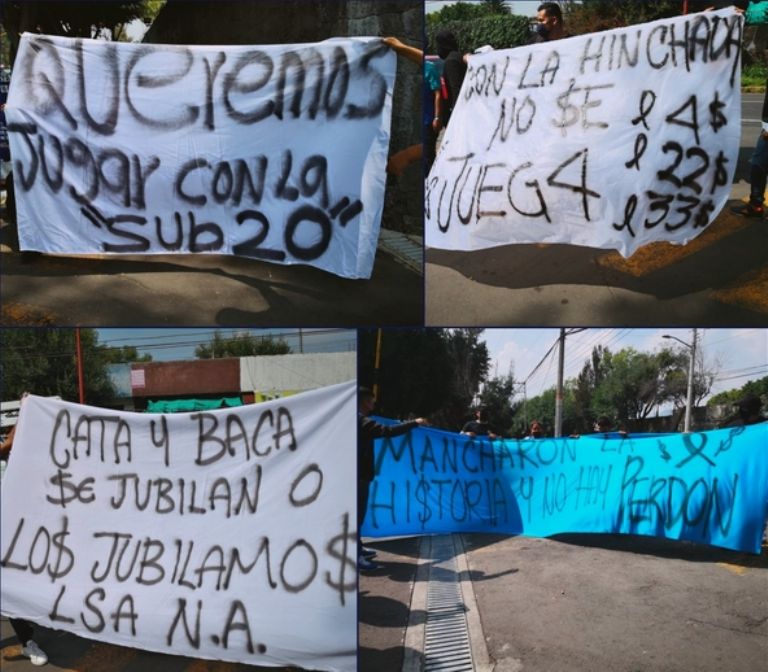 Queremos
Jugar con la
"Sub20"
CON LA HINCHADA
NO $E
JUEG4
4$
22$
33$
CATA Y BACA
$E JUBILAN O
LO$ JUBILAMO$
LSA N.A.
MANCHARON LA
HI$TORIA Y NO HAY PERDON